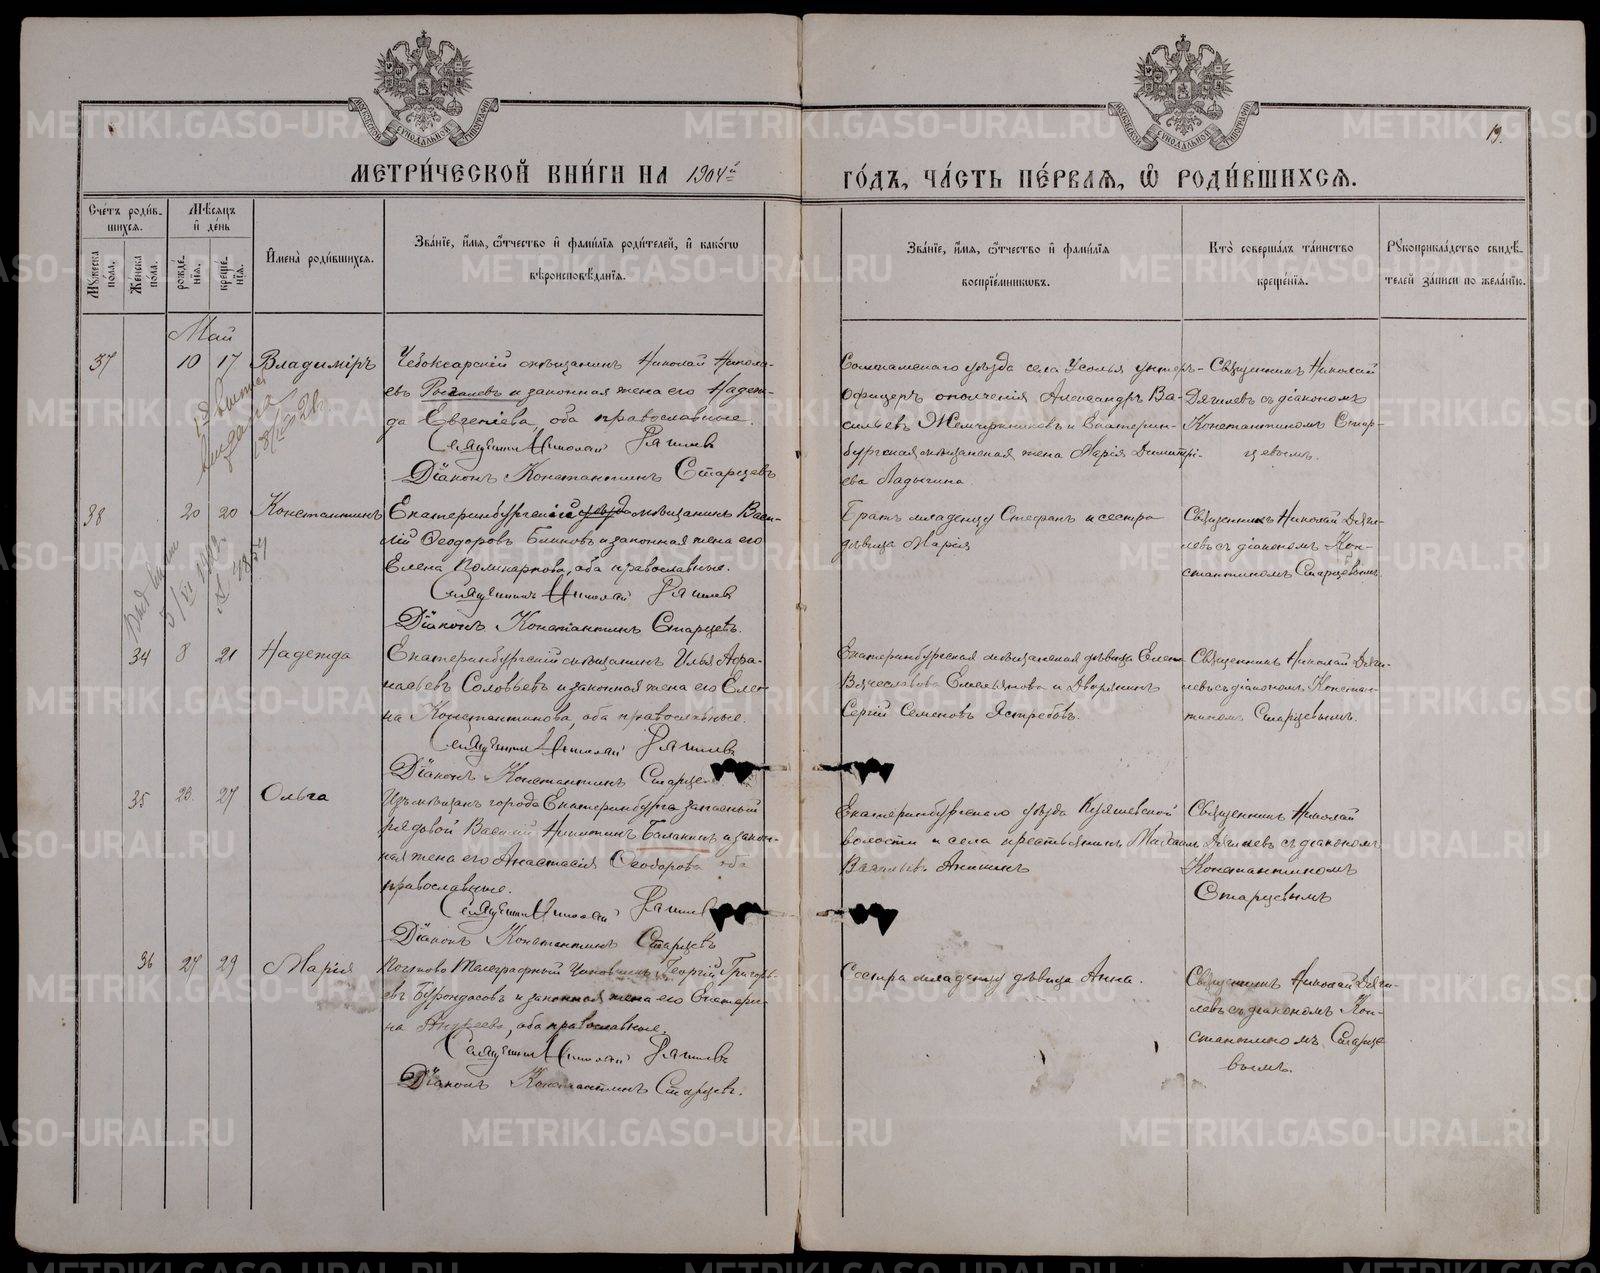 МЕТРИ́ЧЕСКОЙ КНИ́ГИ НА 1904й
ГО́ДЪ, ЧА́СТЬ ПЕ́РВАЯ, Ѿ РОДИ́ВШИХСЯ.
19.
Сче́тъ роди́в-
шихся.
Мѣ́сяцъ
и҆ де́нь
Мꙋжеска
по́ла.
Же́нска
по́ла.
рожде́-
нїѧ.
креще́-
нїѧ.
И҆мена̀ роди́вшихся.
Зва́нїе, и҆́мя, ѻ҆́тчество и҆ фами́лїя роди́телей, и҆ како́гѡ
вѣроисповѣ́данїѧ.
Зва́нїе, и҆́мя, ѻ҆́тчество и҆ фами́лїя
воспрїе́мникѡвъ.
Кто̀ соверша́лъ та́инство
креще́нїѧ.
Рꙋкоприкла́дство свидѣ́-
телей за́писи по жела́нїю.
Май
37 10 17 Владиміръ
Чебоксарскій мѣщанинъ Николай Никола-
евъ и законная жена его Надеж-
да Евгеніева, оба православные.
Священникъ Николай Дягилевъ
Діаконъ Константинъ Старцевъ
уѣзда села Усолья унтеръ-
офицеръ ополченія Александръ Ва-
сильевъ Жемчужниковъ и Екатерин-
бургская мѣщанская жена Марія Димитрі-
ева Ладыгина.
Священникъ Николай
Дягилевъ съ діакономъ
Константиномъ Стар-
цевымъ.
38 20 20 Константинъ
Екатеринбургскій уѣзда мѣщанинъ Васи-
лій Ѳеодоровъ Блиновъ и законная жена его
Елена Поликарпова, оба православные.
Священникъ Николай Дягилевъ
Діаконъ Константинъ Старцевъ.
Братъ младенцу Стефанъ и сестра
дѣвица Марія
Священникъ Николай Дяги-
левъ съ діакономъ Кон-
стантиномъ Старцевымъ.
34 8 21 Надежда
Екатеринбургскій мѣщанинъ Илья Афа-
насьевъ Соловьевъ и законная жена его Еле-
на Константинова, оба православные.
Священникъ Николай Дягилевъ
Діаконъ Константинъ Старцевъ
Екатеринбургская мѣщанская дѣвица Елена
Вячеславова Емельянова и Дворянинъ
Сергій Семеновъ Ястребовъ.
Священникъ Николай Дяги-
левъ съ діакономъ Констан-
тиномъ Старцевымъ.
35 23. 27 Ольга
Изъ мѣщанъ города Екатеринбурга запасный
рядовой Василій Никитинъ Балакинъ и закон-
ная жена его Анастасія Ѳеодорова оба
православные.
Священникъ Николай Дягилевъ
Діаконъ Константинъ Старцевъ
Екатеринбургскаго уѣзда
волости и села крестьянинъ Михаилъ
Васильевъ Аникинъ
Священникъ Николай
Дягилевъ съ діакономъ
Константиномъ
Старцевымъ
36 27 29 Марія
Почтово Телеграфный Чиновникъ Георгій Григорь-
евъ Бурондасовъ и законная жена его Екатери-
на Андреева, оба православные.
Священникъ Николай Дягилевъ
Діаконъ Константинъ Старцевъ.
Сестра младенцу дѣвица Анна.
Священникъ Николай Дяги-
левъ съ діакономъ Кон-
стантиномъ Старце-
вымъ.
METRIKI.GASO-URAL.RU